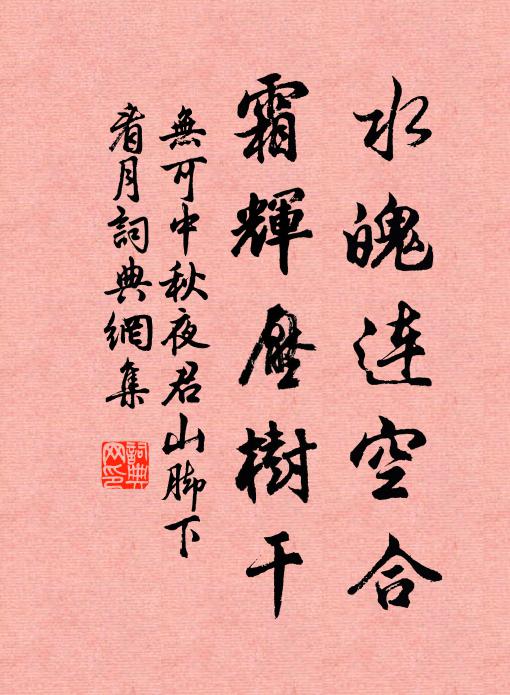 水魄连空合
霜輝壓樹干
無可中秋夜君山脚下
看月詞典網集
詞典網印